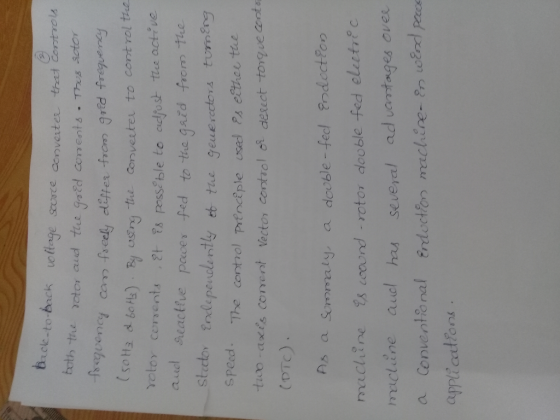 ②
back-to-back voltage source converter that controls
both the rotor and the grid currents. Thus rotor
frequency can freely differ from grid frequency
(50Hz & 60Hz). By using the converter to control the
rotor currents, it is possible to adjust the active
and reactive power fed to the grid from the
stator independently of the generators turning
speed. The control principle used is either the
two-axis current vector control or direct torque control
(DTC).
As a summary, a double-fed induction
machine is wound-rotor double fed electric
machine and has several advantages over
a conventional induction machine in wind power
applications.